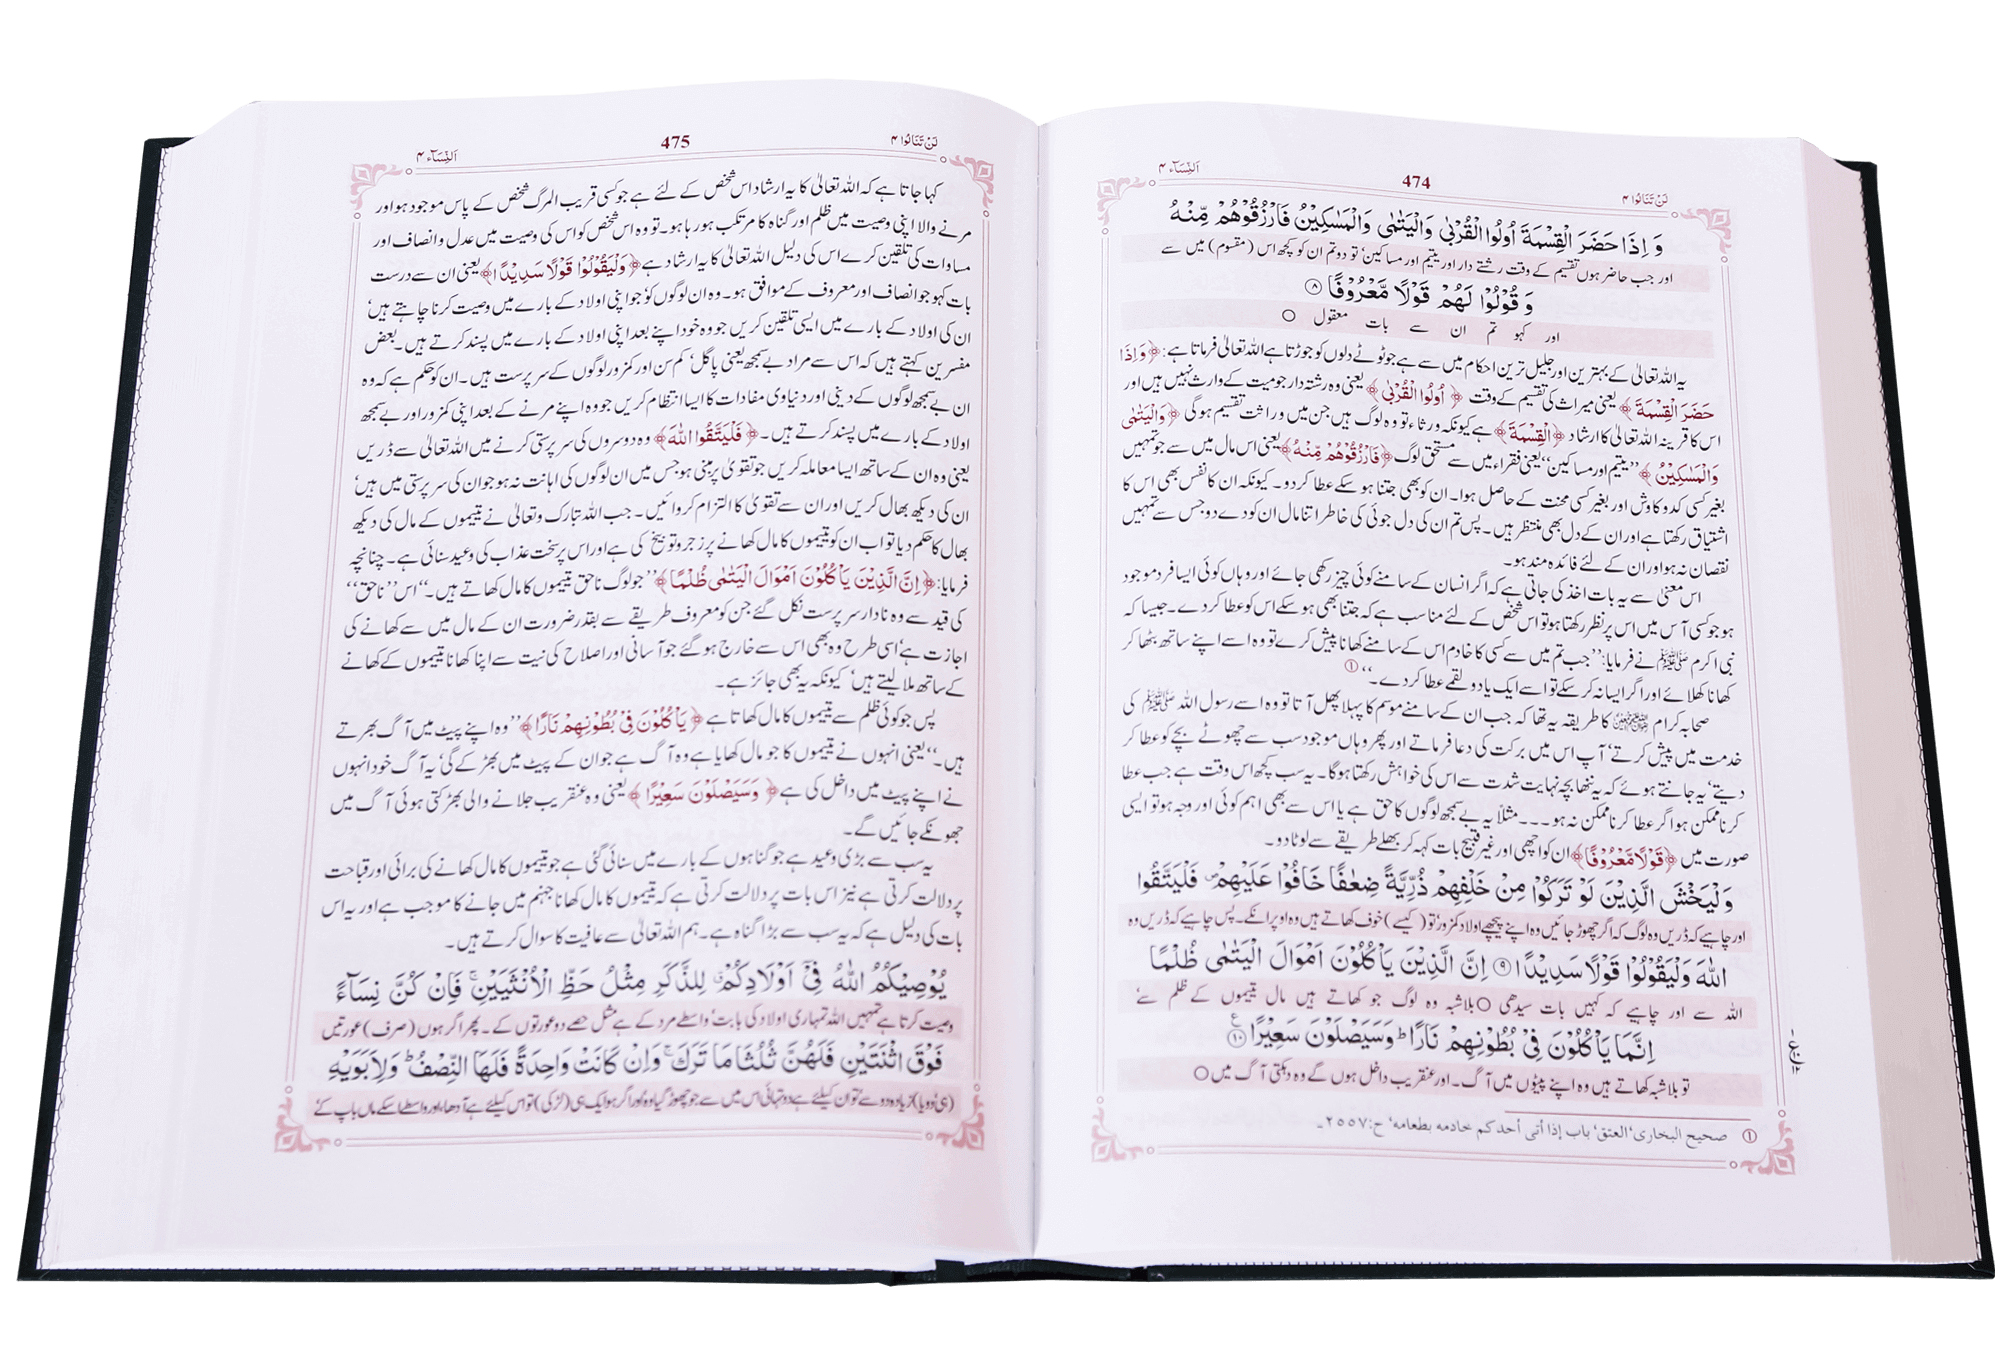 لَنْ تَنَالُوا ۴
474
اَلنِّسَآء ۴
وَ اِذَا حَضَرَ الْقِسْمَةَ اُولُوا الْقُرْبٰى وَالْيَتٰمٰى وَالْمَسٰكِيْنُ فَارْزُقُوْهُمْ مِّنْهُ
اور جب حاضر ہوں تقسیم کے وقت رشتے دار اور یتیم اور مساکین، تو دو تم ان کو کچھ اس (مقسوم) میں سے
وَ قُوْلُوْا لَهُمْ قَوْلًا مَّعْرُوْفًا ۸
اور کہو تم ان سے بات معقول ○
یہ اللہ تعالیٰ کے بہترین اور جلیل ترین احکام میں سے ہے جو ٹوٹے دلوں کو جوڑتا ہے اللہ تعالیٰ فرماتا ہے: ﴿وَاِذَا
حَضَرَ الْقِسْمَةَ﴾ یعنی میراث کی تقسیم کے وقت ﴿اُولُوا الْقُرْبٰى﴾ یعنی وہ رشتہ دار جو میت کے وارث نہیں ہیں اور
اس کا قرینہ اللہ تعالیٰ کا ارشاد ﴿الْقِسْمَةَ﴾ ہے کیونکہ ورثاء تو وہ لوگ ہیں جن میں وراثت تقسیم ہو گی ﴿وَالْيَتٰمٰى
وَالْمَسٰكِيْنُ﴾ ”یتیم اور مساکین“ یعنی فقراء میں سے مستحق لوگ ﴿فَارْزُقُوْهُمْ مِّنْهُ﴾ یعنی اس مال میں سے جو تمہیں
بغیر کسی کدو کاوش اور بغیر کسی محنت کے حاصل ہوا۔ ان کو بھی جتنا ہو سکے عطا کر دو۔ کیونکہ ان کا نفس بھی اس کا
اشتیاق رکھتا ہے اور ان کے دل بھی منتظر ہیں۔ پس تم ان کی دل جوئی کی خاطر اتنا مال ان کو دے دو جس سے تمہیں
نقصان نہ ہو اور ان کے لئے فائدہ مند ہو۔
اس معنیٰ سے یہ بات اخذ کی جاتی ہے کہ اگر انسان کے سامنے کوئی چیز رکھی جائے اور وہاں کوئی ایسا فرد موجود
ہو جو کسی آس میں اس پر نظر رکھتا ہو تو اس شخص کے لئے مناسب ہے کہ جتنا بھی ہو سکے اس کو عطا کر دے۔ جیسا کہ
نبی اکرم ﷺ نے فرمایا: ”جب تم میں سے کسی کا خادم اس کے سامنے کھانا پیش کرے تو وہ اسے اپنے ساتھ بٹھا کر
کھانا کھلائے اور اگر ایسا نہ کر سکے تو اسے ایک یا دو لقمے عطا کر دے۔“ ①
صحابہ کرام کا طریقہ یہ تھا کہ جب ان کے سامنے موسم کا پہلا پھل آتا تو وہ اسے رسول اللہ ﷺ کی
خدمت میں پیش کرتے، آپ اس میں برکت کی دعا فرماتے اور پھر وہاں موجود سب سے چھوٹے بچے کو عطا کر
دیتے، یہ جانتے ہوئے کہ یہ ننھا بچہ نہایت شدت سے اس کی خواہش رکھتا ہوگا۔ یہ سب کچھ اس وقت ہے جب عطا
کرنا ممکن ہو اگر عطا کرنا ممکن نہ ہو۔۔۔ مثلاً یہ بے سمجھ لوگوں کا حق ہے یا اس سے بھی اہم کوئی اور وجہ ہو تو ایسی
صورت میں ﴿قَوْلًا مَّعْرُوْفًا﴾ ان کو اچھی اور غیر قبیح بات کہہ کر بھلے طریقے سے لوٹا دو۔
وَلْيَخْشَ الَّذِيْنَ لَوْ تَرَكُوْا مِنْ خَلْفِهِمْ ذُرِّيَّةً ضِعٰفًا خَافُوْا عَلَيْهِمْ فَلْيَتَّقُوا
اور چاہیے کہ ڈریں وہ لوگ کہ اگر چھوڑ جائیں وہ اپنے پیچھے اولاد کمزور، تو (کیسے) خوف کھاتے ہیں وہ اوپر انکے۔ پس چاہیے کہ ڈریں وہ
اللّٰهَ وَلْيَقُوْلُوْا قَوْلًا سَدِيْدًا ۹ اِنَّ الَّذِيْنَ يَاْكُلُوْنَ اَمْوَالَ الْيَتٰمٰى ظُلْمًا
اللہ سے اور چاہیے کہ کہیں بات سیدھی ○ بلاشبہ وہ لوگ جو کھاتے ہیں مال یتیموں کے ظلم سے،
اِنَّمَا يَاْكُلُوْنَ فِيْ بُطُوْنِهِمْ نَارًا ؕ وَسَيَصْلَوْنَ سَعِيْرًا ۱۰
تو بلاشبہ کھاتے ہیں وہ اپنے پیٹوں میں آگ۔ اور عنقریب داخل ہوں گے وہ دہکتی آگ میں ○
① صحيح البخاری، العتق، باب إذا أتی أحدكم خادمه بطعامه، ح:۲۵۵۷۔
لَنْ تَنَالُوا ۴
475
اَلنِّسَآء ۴
کہا جاتا ہے کہ اللہ تعالیٰ کا یہ ارشاد اس شخص کے لئے ہے جو کسی قریب المرگ شخص کے پاس موجود ہو اور
مرنے والا اپنی وصیت میں ظلم اور گناہ کا مرتکب ہو رہا ہو۔ تو وہ اس شخص کو اس کی وصیت میں عدل و انصاف اور
مساوات کی تلقین کرے اس کی دلیل اللہ تعالیٰ کا یہ ارشاد ہے ﴿وَلْيَقُوْلُوْا قَوْلًا سَدِيْدًا﴾ یعنی ان سے درست
بات کہو جو انصاف اور معروف کے موافق ہو۔ وہ ان لوگوں کو، جو اپنی اولاد کے بارے میں وصیت کرنا چاہتے ہیں،
ان کی اولاد کے بارے میں ایسی تلقین کریں جو وہ خود اپنے بعد اپنی اولاد کے بارے میں پسند کرتے ہیں۔ بعض
مفسرین کہتے ہیں کہ اس سے مراد بے سمجھ یعنی پاگل، کم سن اور کمزور لوگوں کے سرپرست ہیں۔ ان کو حکم ہے کہ وہ
ان بے سمجھ لوگوں کے دینی اور دنیاوی مفادات کا ایسا انتظام کریں جو وہ اپنے مرنے کے بعد اپنی کمزور اور بے سمجھ
اولاد کے بارے میں پسند کرتے ہیں۔ ﴿فَلْيَتَّقُوا اللّٰهَ﴾ وہ دوسروں کی سرپرستی کرنے میں اللہ تعالیٰ سے ڈریں
یعنی وہ ان کے ساتھ ایسا معاملہ کریں جو تقویٰ پر مبنی ہو جس میں ان لوگوں کی اہانت نہ ہو جو ان کی سرپرستی میں ہیں،
ان کی دیکھ بھال کریں اور ان سے تقویٰ کا التزام کروائیں۔ جب اللہ تبارک وتعالیٰ نے یتیموں کے مال کی دیکھ
بھال کا حکم دیا تو اب ان کو یتیموں کا مال کھانے پر زجر و توبیخ کی ہے اور اس پر سخت عذاب کی وعید سنائی ہے۔ چنانچہ
فرمایا: ﴿اِنَّ الَّذِيْنَ يَاْكُلُوْنَ اَمْوَالَ الْيَتٰمٰى ظُلْمًا﴾ ”جو لوگ ناحق یتیموں کا مال کھاتے ہیں۔“ اس ”ناحق“
کی قید سے وہ نادار سرپرست نکل گئے جن کو معروف طریقے سے بقدر ضرورت ان کے مال میں سے کھانے کی
اجازت ہے، اسی طرح وہ بھی اس سے خارج ہو گئے جو آسانی اور اصلاح کی نیت سے اپنا کھانا یتیموں کے کھانے
کے ساتھ ملا لیتے ہیں، کیونکہ یہ بھی جائز ہے۔
پس جو کوئی ظلم سے یتیموں کا مال کھاتا ہے ﴿يَاْكُلُوْنَ فِيْ بُطُوْنِهِمْ نَارًا﴾ ”وہ اپنے پیٹ میں آگ بھرتے
ہیں۔“ یعنی انہوں نے یتیموں کا جو مال کھایا ہے وہ آگ ہے جو ان کے پیٹ میں بھڑکے گی، یہ آگ خود انہوں
نے اپنے پیٹ میں داخل کی ہے ﴿وَسَيَصْلَوْنَ سَعِيْرًا﴾ یعنی وہ عنقریب جلانے والی بھڑکتی ہوئی آگ میں
جھونکے جائیں گے۔
یہ سب سے بڑی وعید ہے جو گناہوں کے بارے میں سنائی گئی ہے جو یتیموں کا مال کھانے کی برائی اور قباحت
پر دلالت کرتی ہے نیز اس بات پر دلالت کرتی ہے کہ یتیموں کا مال کھانا جہنم میں جانے کا موجب ہے اور یہ اس
بات کی دلیل ہے کہ یہ سب سے بڑا گناہ ہے۔ ہم اللہ تعالیٰ سے عافیت کا سوال کرتے ہیں۔
يُوْصِيْكُمُ اللّٰهُ فِيْٓ اَوْلَادِكُمْ لِلذَّكَرِ مِثْلُ حَظِّ الْاُنْثَيَيْنِ فَاِنْ كُنَّ نِسَآءً
وصیت کرتا ہے تمہیں اللہ تمہاری اولاد کی بابت، واسطے مرد کے ہے مثل حصے دو عورتوں کے۔ پھر اگر ہوں (صرف) عورتیں
فَوْقَ اثْنَتَيْنِ فَلَهُنَّ ثُلُثَا مَا تَرَكَ وَاِنْ كَانَتْ وَاحِدَةً فَلَهَا النِّصْفُ وَلِاَبَوَيْهِ
(ہی دو یا) زیادہ دو سے تو ان کیلئے ہے دو تہائی اس میں سے جو چھوڑ گیا وہ، اور اگر ہو ایک ہی (لڑکی) تو اس کیلئے ہے آدھا، اور واسطے اسکے ماں باپ کے،